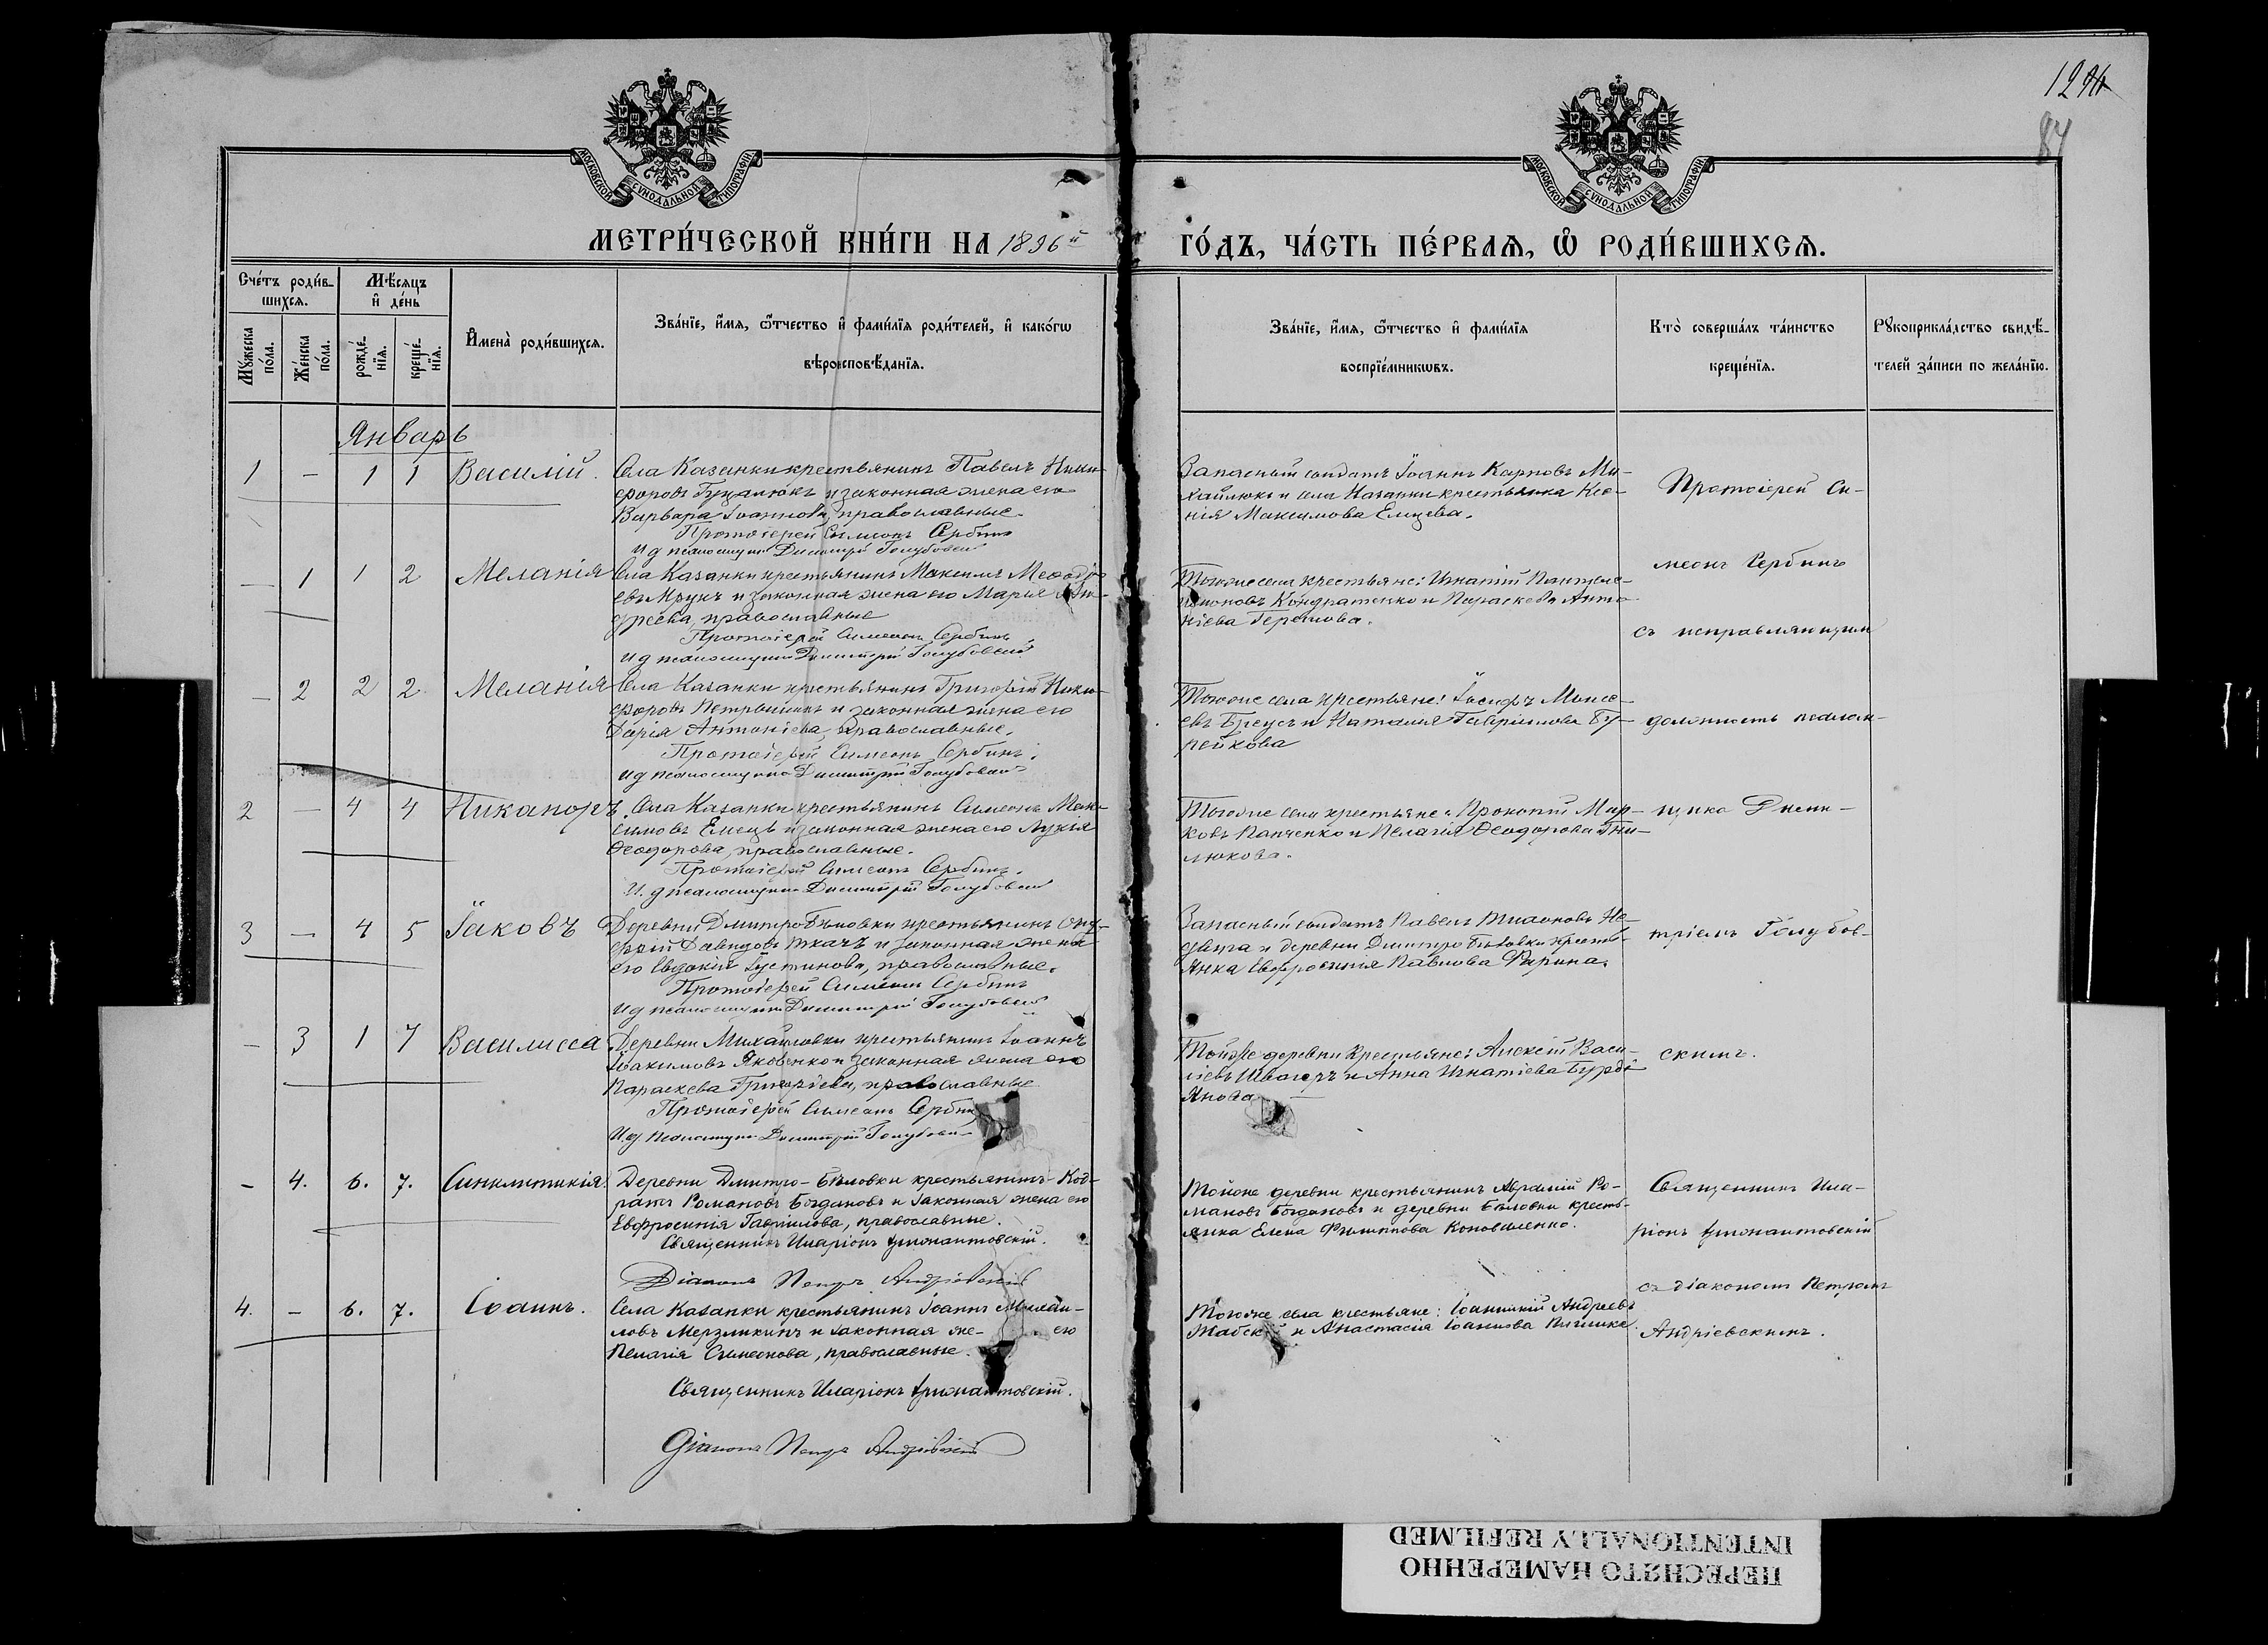 1294
84
МОСКОВСКОЙ СѴНОДАЛЬНОЙ ТИПОГРАФІИ.
МОСКОВСКОЙ СѴНОДАЛЬНОЙ ТИПОГРАФІИ.
МЕТРИ́ЧЕСКОЙ КНИ́ГИ НА 1896й ГО́ДЪ, ЧА́СТЬ ПЕ́РВАѦ, Ѡ РОДИ́ВШИХСѦ.
Сче́тъ роди́в-
шихсѧ.
Мѣ́сѧцъ
и҆ де́нь
Мꙋ́жеска
по́ла.
Же́нска
по́ла.
рожде́-
нїѧ.
креще́-
нїѧ.
И҆мена̀ роди́вшихсѧ.
Зва́нїе, и҆́мѧ, ѻ҆́тчество и҆ фами́лїѧ роди́телей, и҆ како́гѡ
вѣроисповѣ́данїѧ.
Зва́нїе, и҆́мѧ, ѻ҆́тчество и҆ фами́лїѧ
воспрїе́мникѡвъ.
Кто̀ соверша́лъ та́инство
креще́нїѧ.
Рꙋкоприкла́дство свидѣ́-
телей за́писи по жела́нїю.
Январь
1 – 1 1 Василій.
Села Казанки крестьянинъ Павелъ Ники-
форовъ Гуцалюкъ и законная жена его
Варвара Іоаннова, православные.
Протоіерей Симеонъ Сербинъ
И д псаломщика Димитрій Голубовскій
Запасный солдатъ Іоаннъ Карповъ Ми-
хайлюкъ и села Казанки крестьянка Ксе-
нія Максимова Емцева.
Протоіерей Си-
– 1 1 2 Меланія
Села Казанки крестьянинъ Максимъ Меѳодіе-
евъ Мрукъ и законная жена его Марья Ан-
дреева, православные
Протоіерей Симеонъ Сербинъ
И д псаломщика Димитрій Голубовскій
Тогоже села крестьяне: Игнатій Пантеле-
имоновъ Кондратенко и Параскева Анто-
ніева
меонъ Сербинъ
съ исправляющимъ
– 2 2 2 Меланія
Села Казанки крестьянинъ Григорій Ники-
форовъ и законная жена его
Дарія Антоніева, православные.
Протоіерей Симеонъ Сербинъ.
И д псаломщика Димитрій Голубовскій
Тогоже села крестьяне: Іосифъ Моисе-
евъ Бреусъ и Наталія Гавріилова Бу-
рейкова
должность псалом-
2 – 4 4 Никаноръ.
Села Казанки крестьянинъ Симеонъ Мак-
симовъ Емецъ и законная жена его Лукія
Ѳеодорова, православные.
Протоіерей Симеонъ Сербинъ.
И. д псаломщика Димитрій Голубовскій
Тогоже села крестьяне: Прокопій Мар-
ковъ Панченко и Пелагія Ѳеодорова Гни-
люкова.
щика Дими-
3 – 4 5 Іаковъ
Деревни Дмитро Бѣловки крестьянинъ Ону-
фрій Давидовъ Ткачъ и законная жена
его Евдокія Іустинова, православные.
Протоіерей Симеонъ Сербинъ
И д псаломщика Димитрій Голубовскій
Запасный солдатъ Павелъ Тихоновъ Не-
и деревни Димитро Бѣловки кресть-
янка Евфросинія Павлова Фарина.
тріемъ Голубов-
– 3 1 7 Василисса
Деревни Михайловки крестьянинъ Іоаннъ
Іоакимовъ Яковенко и законная жена его
Параскева Григоріева, православные
Протоіерей Симеонъ Сербинъ
И д. псаломщика Димитрій Голубовскій
Тойже деревни крестьяне: Алексій Васи-
ліевъ Швагеръ и Анна Игнатіева Бурді-
янова
скимъ.
– 4. 6. 7. Синклитикія.
Деревни Дмитро-Бѣловки крестьянинъ Код-
ратъ Романовъ Богдановъ и законная жена его
Евфросинія Гавріилова, православные.
Священникъ Иларіонъ
Діаконъ Петръ Андріевскій
Тойже деревни крестьянинъ Аврамій Ро-
мановъ Богдановъ и деревни Бѣловки кресть-
янка Елена Филиппова Коноваленко.
Священникъ Ила-
ріонъ
съ діакономъ Петромъ
4. – 6. 7. Іоаннъ.
Села Казанки крестьянинъ Іоаннъ Михаи-
ловъ Мерзликинъ и законная же- его
Пелагія Симеонова, православные.
Священникъ Иларіонъ
Діаконъ Петръ Андріевскій
Тогоже села крестьяне: Іоанникій Андреевъ
и Анастасія Іоаннова
Андріевскимъ.
ПЕРЕСНЯТО НАМЕРЕННО
INTENTIONALLY REFILMED